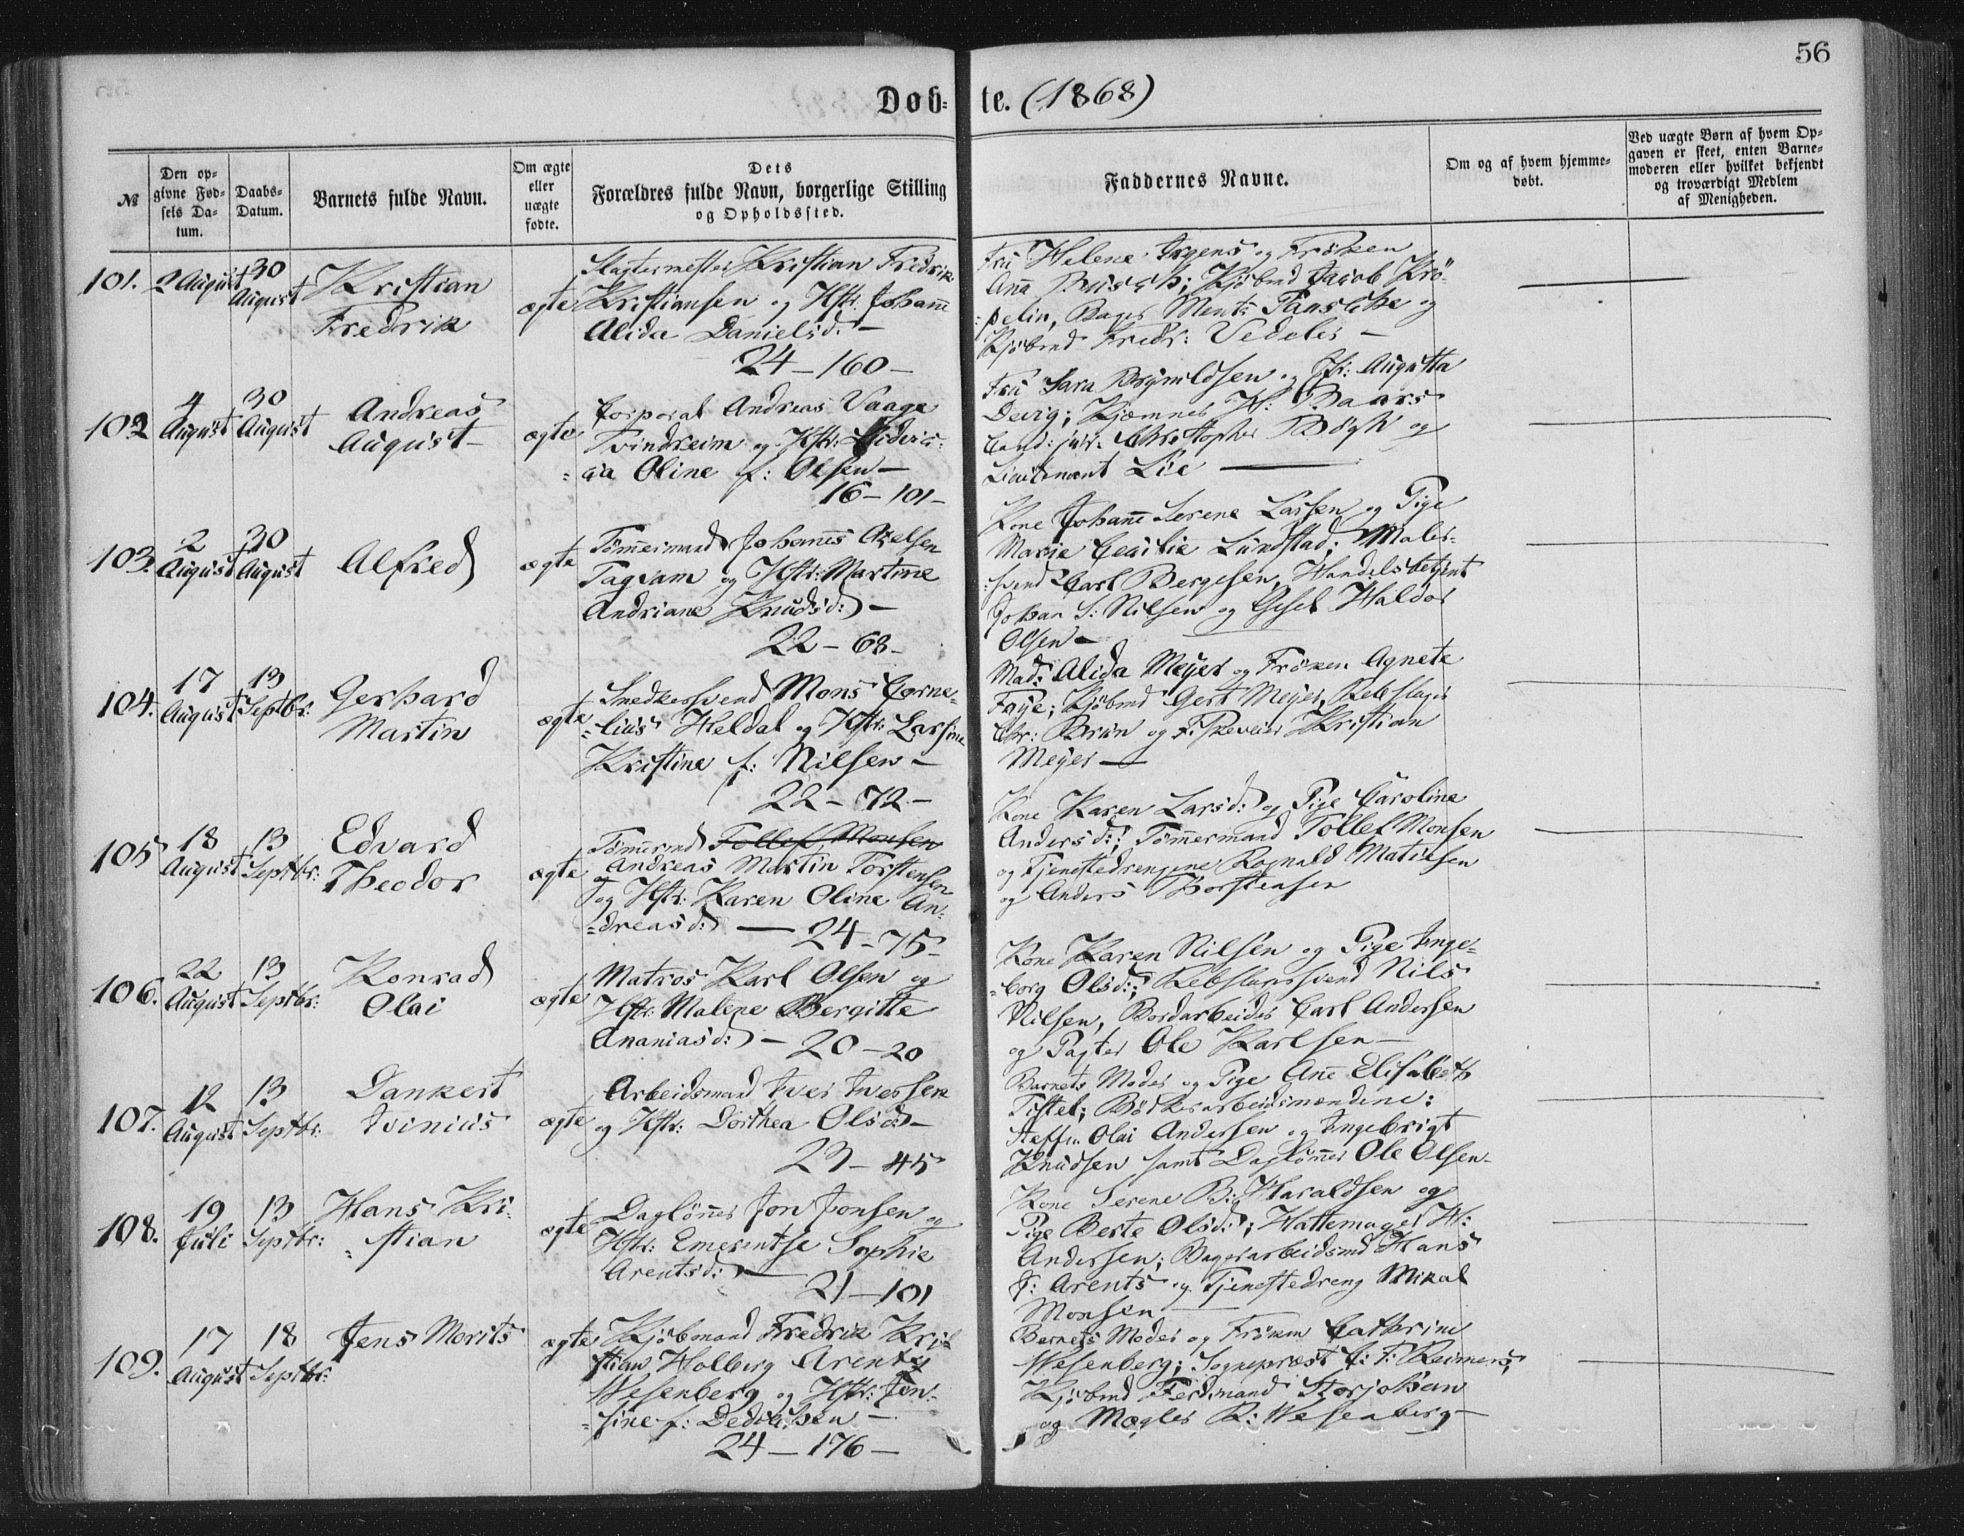 56
Døb- te. (1868)
№
Den op-
givne Fød-
sels Da-
tum.
Daabs-
Datum.
Barnets fulde Navn.
Om ægte
eller
uægte
fødte.
Dets
Forældres fulde Navn, borgerlige Stilling
og Opholdssted.
Faddernes Navne.
Om og af hvem hjemme-
døbt.
Ved uægte Børn af hvem Op-
gaven er skeet, enten Barne-
moderen eller hvilket bekjendt
og troværdigt Medlem
af Menigheden.
101.
2 August
30
August
Kristian
Fredrik
ægte
Slagtermester Kristian Fredrik
Kristiansen og Hstr: Johanne
Alida Danielsd: —
24 — 160 —
Fru Helene Irgens og Frøken
Anna Busch; Kjøbmd Jacob Krö-
pelin, Bager Mentz Tanscke og
Kjøbmd Fredr: Vedeler —
102
4
August
30
August
Andreas
August —
ægte
Corporal Andreas Vaage
Tvindreim og Hstr: Ludvi-
ca Oline f: Olsen —
16 — 101 —
Fru Sara Brynildsen og Jfr: Augusta
Devig; Kjæmner H: Baars
Cand: jur: Christopher Bögh og
Lieutenant Lie —
103.
2
August
30
August
Alfred
ægte
Tømmermand Johannes Axelsen
Tagvam og Hstr: Martine
Andriane Knudsd: —
22 — 68 —
Kone Johanne Serene Larsen og Pige
Marie Cecilie Lundstad; Maler-
svend Carl Bergesen, Handelsbetjent
Johan S: Nilsen og Gesel Haldor
Olsen —
104.
17
August
13
Septbr:
Gerhard
Martin
ægte
Smedkersvend Mons Corne-
lius Heldal og Hstr: Larsine
Kristine f: Nilsen —
22 — 72 —
Mad: Alida Meyer og Frøken Agnete
Faye; Kjøbmd Gert Meyer, Rebslager
Chr: Brun og Fiskeveier Kristian
Meyer —
105
18
August
13
Septbr:
Edvard
Theodor
ægte
Tömmermd Tollef Monsen
Andreas Martin Torstensen
og Hstr: Karen Oline An-
dreasd: — 24 — 75 —
Kone Karen Larsd: og Pige Caroline
Andersd:; Tømmermand Tollef Monsen
og Tjenestedrengene Rognald Matiesen
og Anders Thorstensen
106.
22
August
13
Septbr:
Konrad
Olai
ægte
Matros Karl Olsen og
Hstr: Malene Bergitte
Ananiasd: — 20 — 20
Kone Karen Nilsen og Pige Inge-
borg Olsd:; Rebslagersvend Nils
Nilsen, Bordarbeider Carl Andersen
og Pagter Ole Karlsen —
107.
12
August
13
Septbr:
Dankert
Ivinius
ægte
Arbeidsmand Iver Iversen
og Hstr: Dorthea Olsd: —
23 — 45
Barnets Moder og Pige Ane Elisabeth
Tistel; Bödkerarbeidsmændene:
Steffen Olai Andersen og Ingebrigt
Knudsen samt Dagløner Ole Olsen —
108.
19
Juli
13
Septbr:
Hans Kri-
stian
ægte
Dagløner Jon Jonsen og
Hstr: Emerentse Sophie
Arentsd: —
21 — 101
Kone Serene B: Haraldsen og
Pige Berte Olsd:; Hattemager H:
Andersen; Bagerarbeidsmd Hans
J: Arents og Tjenestedreng Mikal
Monsen —
109.
17
August
18
Septbr:
Jens Morits
ægte
Kjøbmand Fredrik Kri-
stian Holberg Arentz
Wesenberg og Hstr: Jen-
sine f: Dedeksen —
24 — 176 —
Barnets Moder og Frøken Cathrine
Wesenberg; Sognepræst C: F: Reimers,
Kjøbmd Ferdinand Storjohan
og Mægler R: Wesenberg —